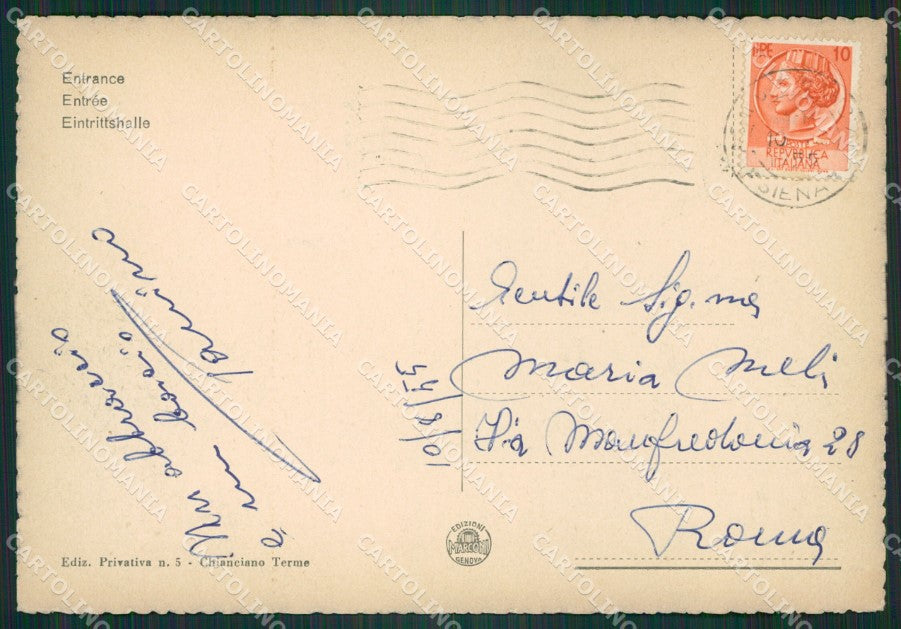 Entrance
Entrée
Eintrittshalle
10
REPVBBLICA
ITALIANA
SIENA
Gentile Sig.na
Maria Meli
Via Manfredonia 28
Roma
10/8/55
Un abbraccio
e un bacio
EDIZIONI
MARCONI
GENOVA
Ediz. Privativa n. 5 - Chianciano Terme
CARTOLINOMANIA